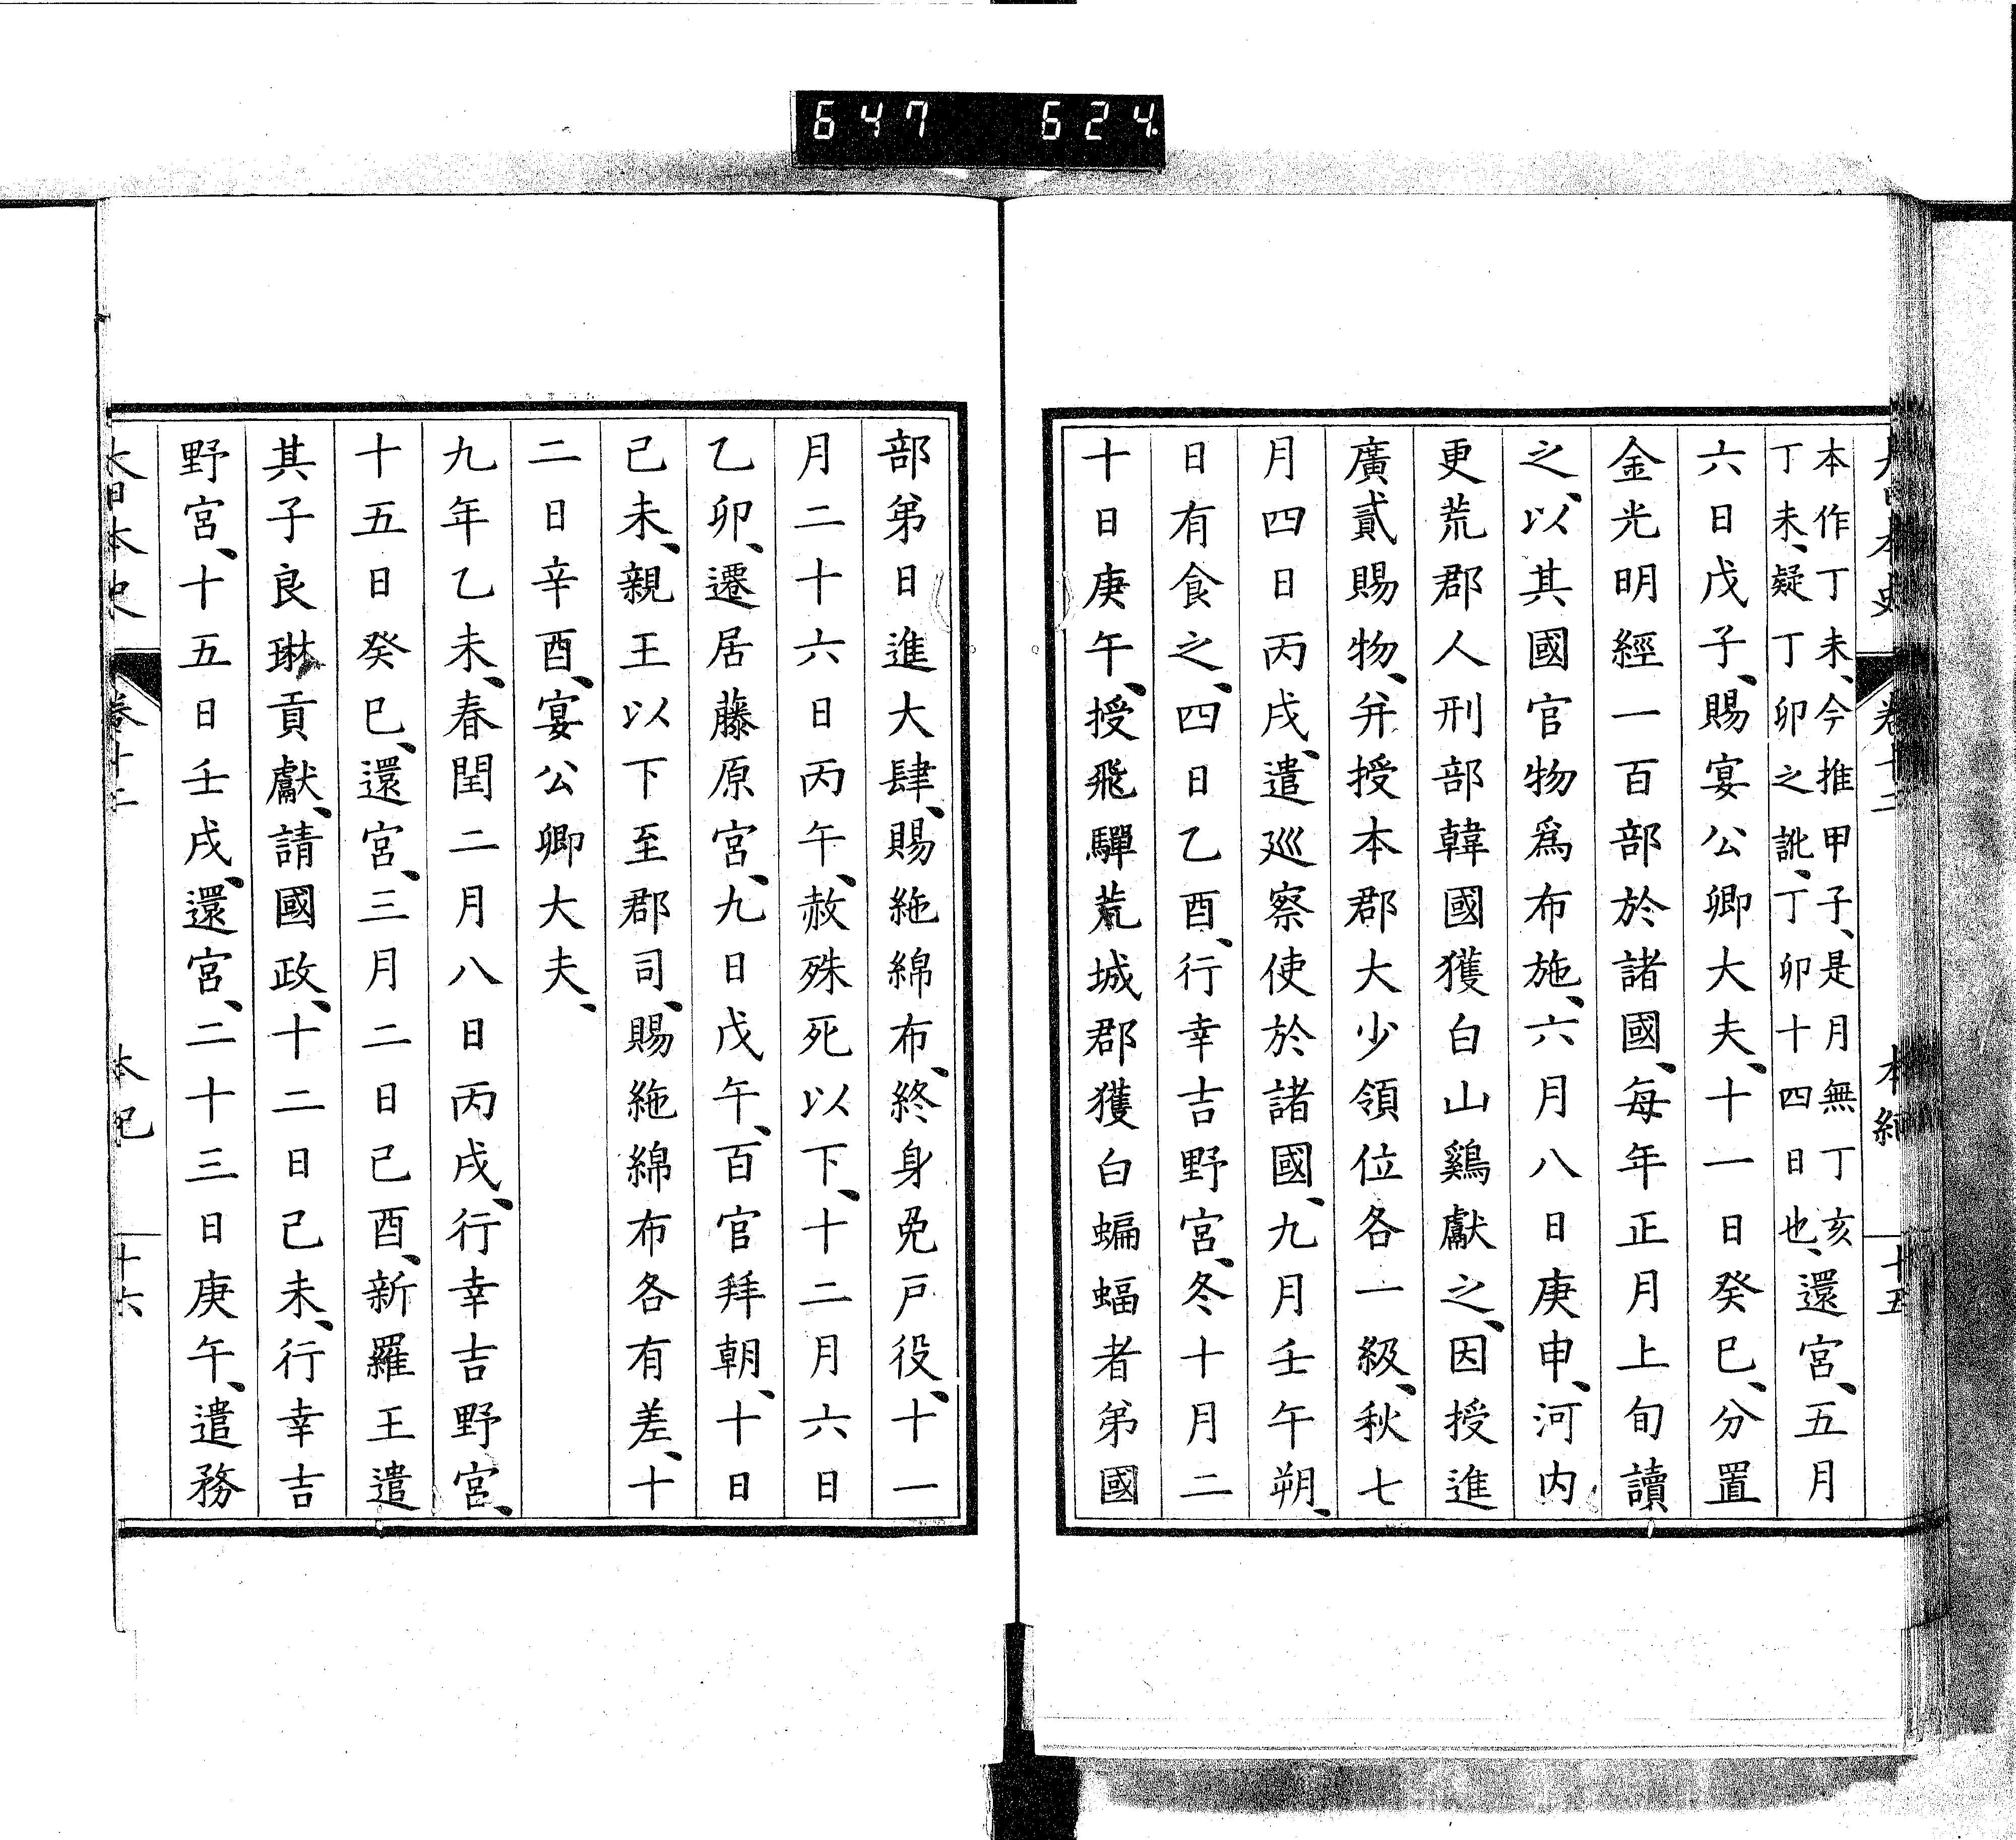 647 624
大日本史 卷十二 本紀 十五
本作丁未、今推甲子、是月無丁亥
丁未、疑丁卯之訛、丁卯十四日也、還宮、五月
六日戊子、賜宴公卿大夫、十一日癸巳、分置
金光明經一百部於諸國、每年正月上旬讀
之、以其國官物爲布施、六月八日庚申、河内
更荒郡人刑部韓國獲白山鷄獻之、因授進
廣貳賜物、幷授本郡大少領位各一級、秋七
月四日丙戌、遣巡察使於諸國、九月壬午朔、
日有食之、四日乙酉、行幸吉野宮、冬十月二
十日庚午、授飛驒荒城郡獲白蝙蝠者弟國
部弟日進大肆、賜絁綿布、終身免戸役、十一
月二十六日丙午、赦殊死以下、十二月六日
乙卯、遷居藤原宮、九日戊午、百官拜朝、十日
己未、親王以下至郡司、賜絁綿布各有差、十
二日辛酉、宴公卿大夫、
九年乙未、春閏二月八日丙戌、行幸吉野宮、
十五日癸巳、還宮、三月二日己酉、新羅王遣
其子良琳貢獻、請國政、十二日己未、行幸吉
野宮、十五日壬戌、還宮、二十三日庚午、遣務
大日本史 卷十二 本紀 十六